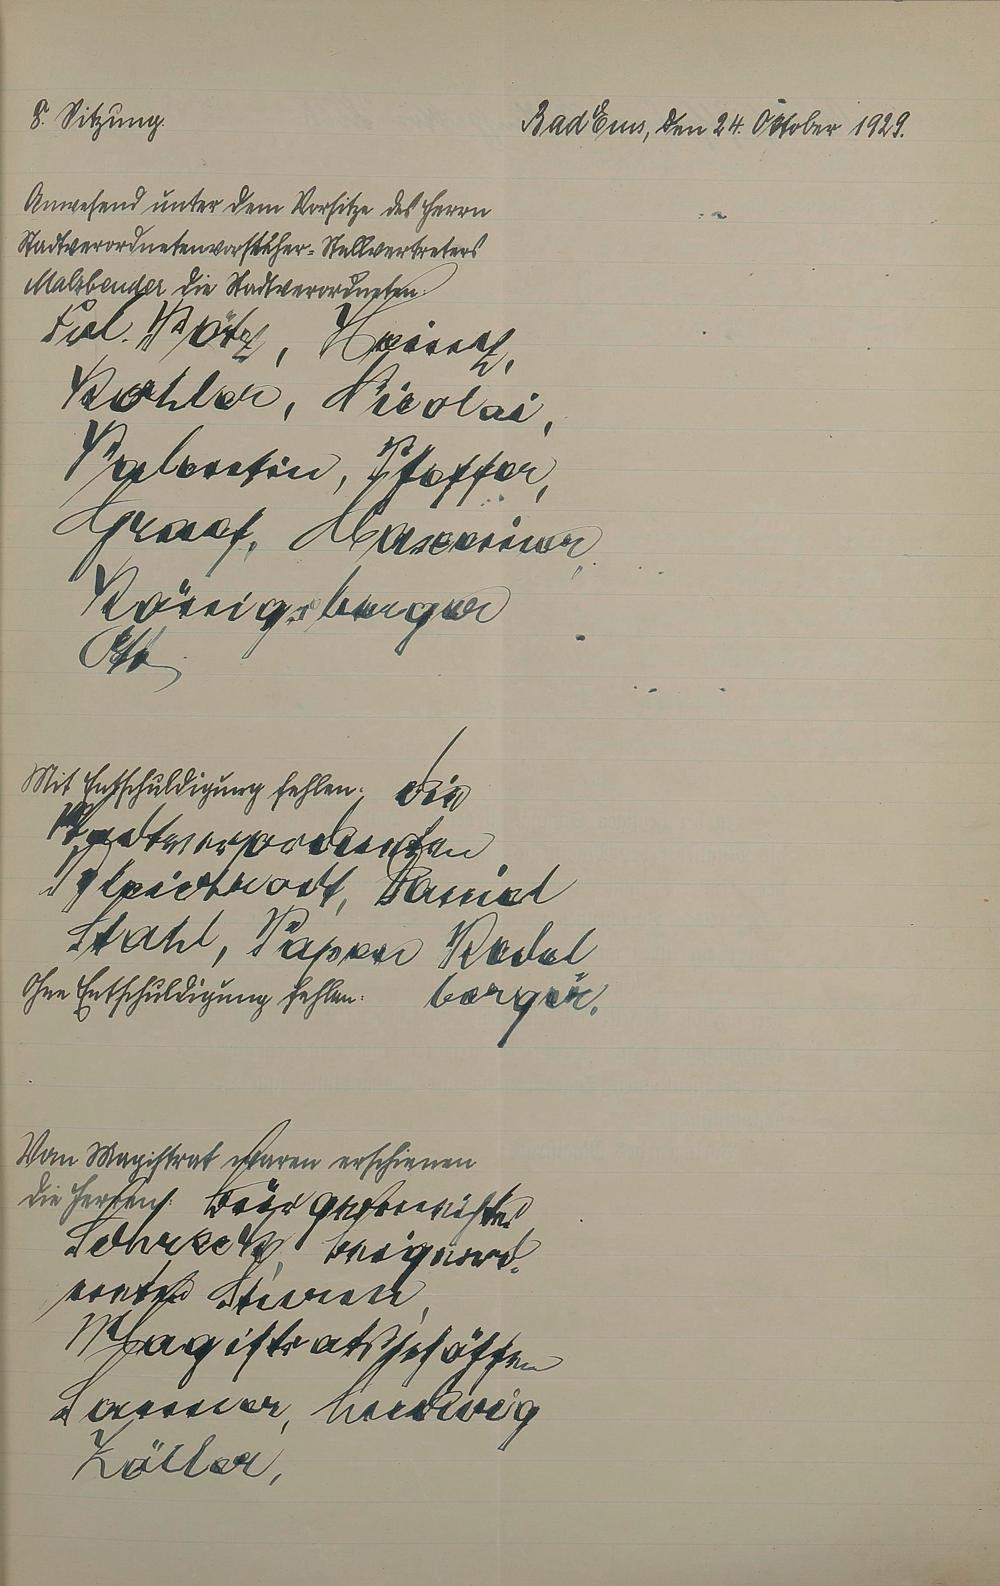 8. Sitzung.
Bad Ems, den 24. Oktober 1929.
Anwesend unter dem Vorsitze des Herrn
Stadtverordnetenvorsteher-Stellvertreters
Malzbender die Stadtverordneten
Frl. Kötz,
Kohler, Nicolai,
Pfeffer,
Graef,
Königsberger
Ott
Mit Entschuldigung fehlen: die
Stadtverordneten
Daniel
Stahl,
Ohne Entschuldigung fehlen:
Vom Magistrat waren erschienen
die Herren: Bürgermeister
Schreck, Beigeord-
neter
Magistratsschöffen
Ludwig
Zöller,